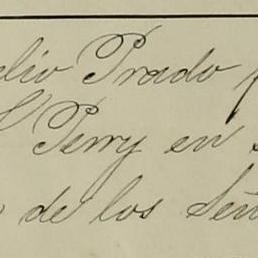 elio Prado
Perry en
de los Señ